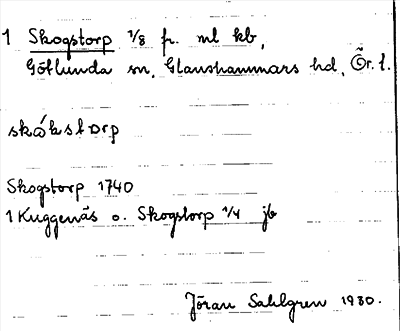 1 Skogstorp 1/8 fr. ml kb,
Götlunda sn, Glanshammars hd, Ör. l.
skåkstorp
Skogstorp 1740
1 Kuggenäs o. Skogstorp 1/4 jb
Jöran Sahlgren 1930.